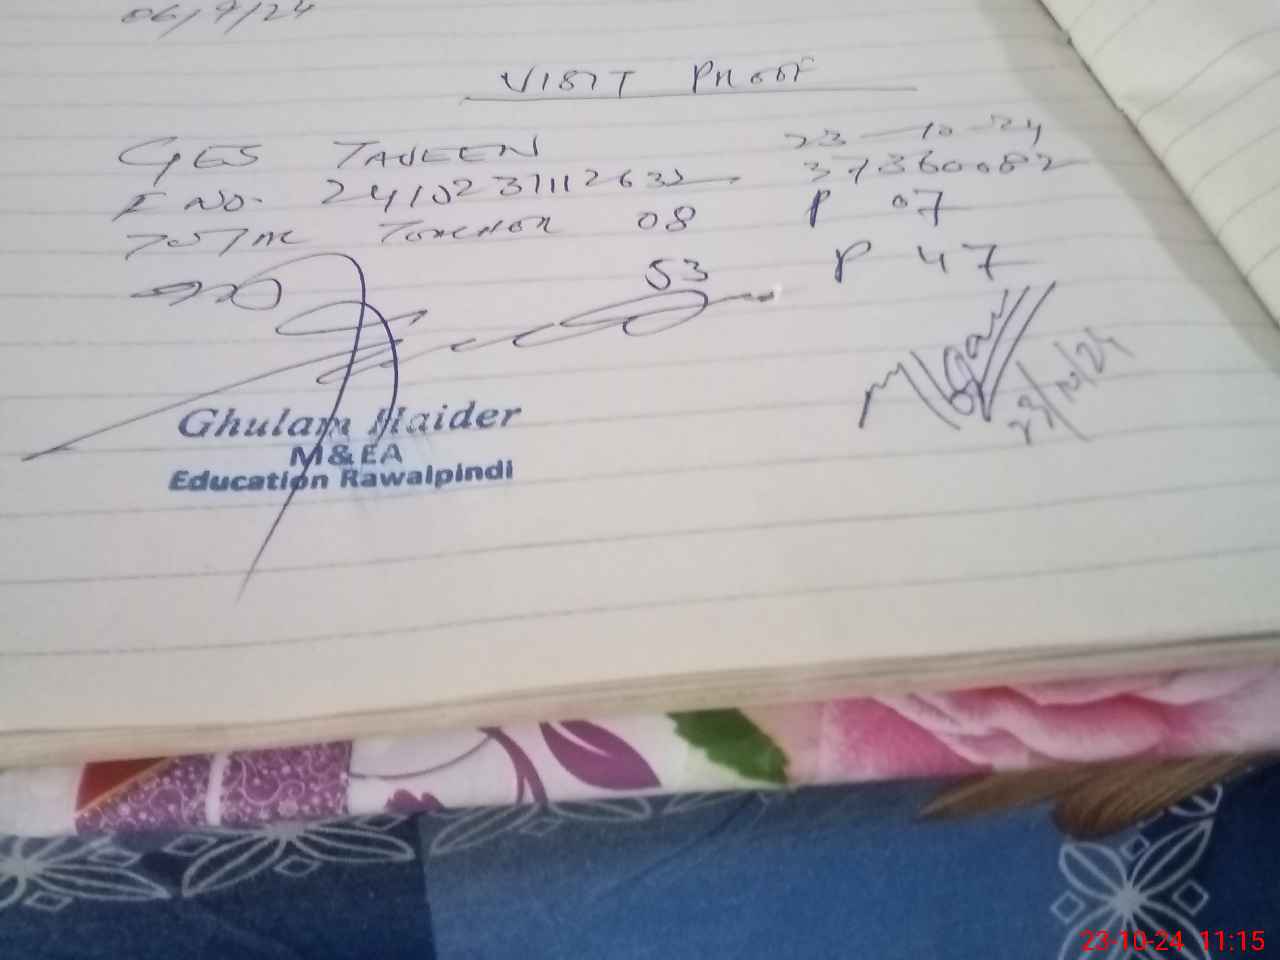 06/9/24
VISIT PROOF
GES TAHEEN 23-10-24
I NO. 2410231112632 37360082
TOTAL TEACHER 08 P 07
53 P 47
Ghulam Haider
M&EA
Education Rawalpindi
23/10/24
23-10-24 11:15